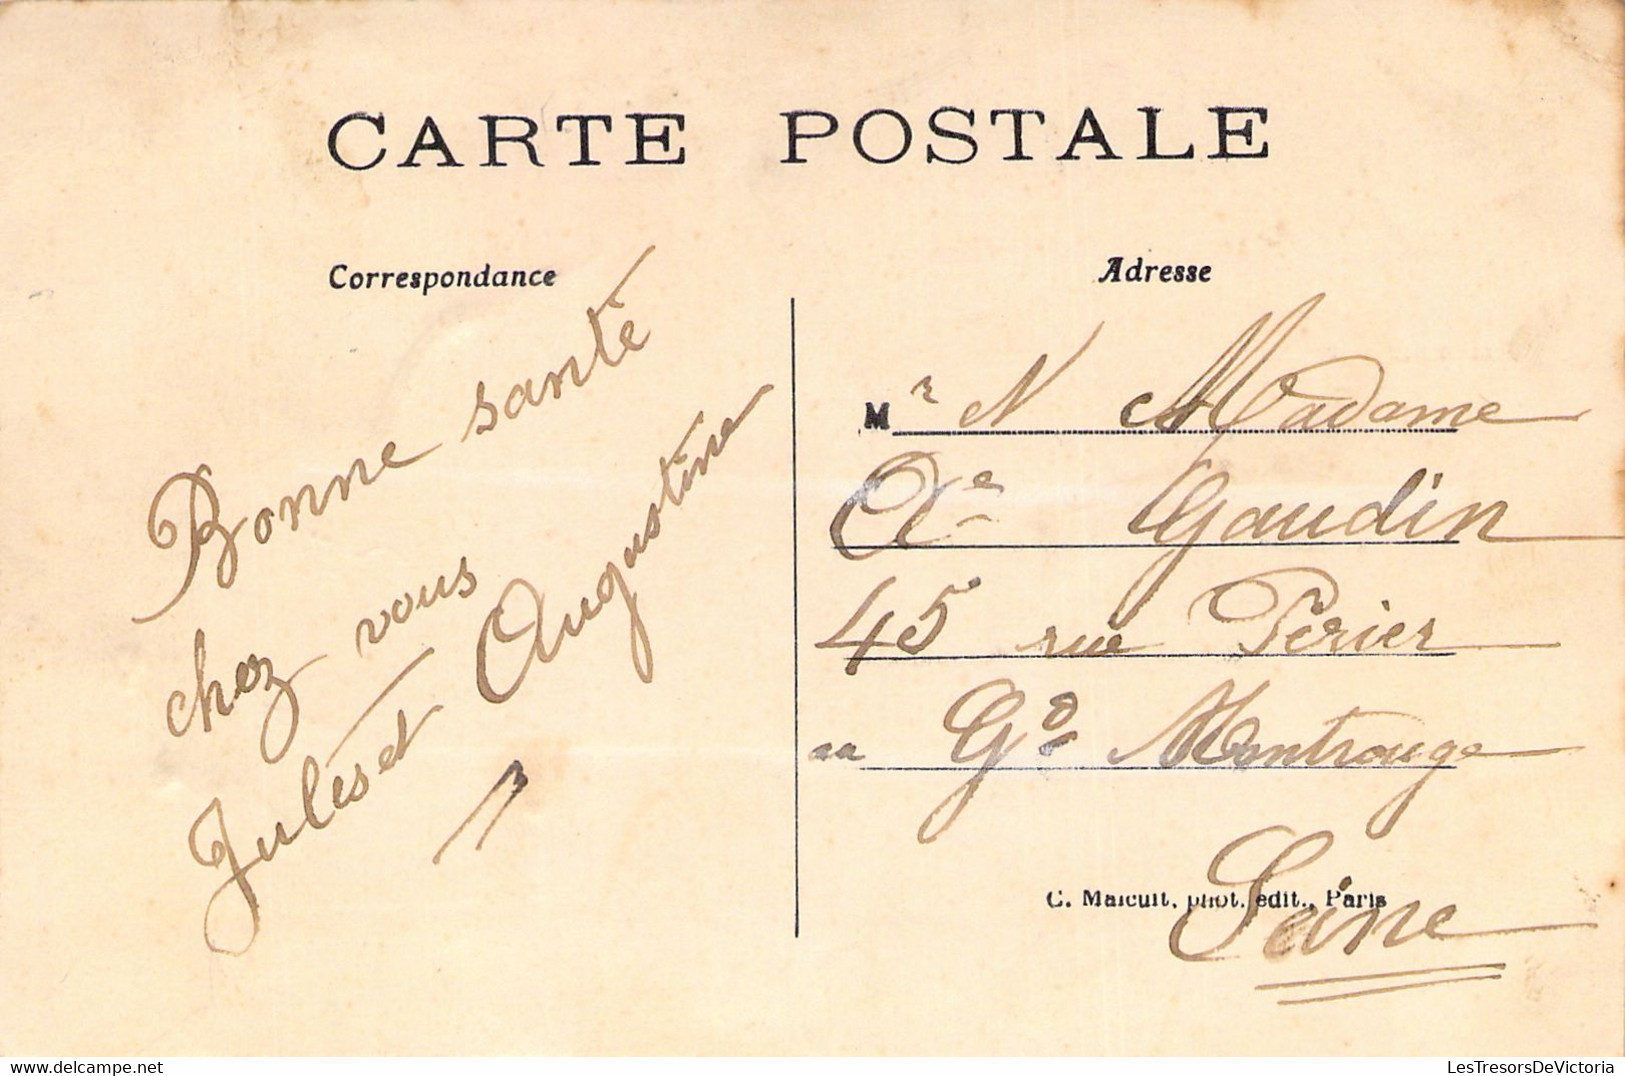 CARTE POSTALE
Correspondance
Bonne santé
chez vous
Jules et Augustine
Adresse
Mr N Madame
Ae Gaudin
45 rue Périer
au Gd Montrouge
Seine
C. Malcuit, phot. édit., Paris
LesTresorsDeVictoria
LesTresorsDeVictoria.delcampe.net